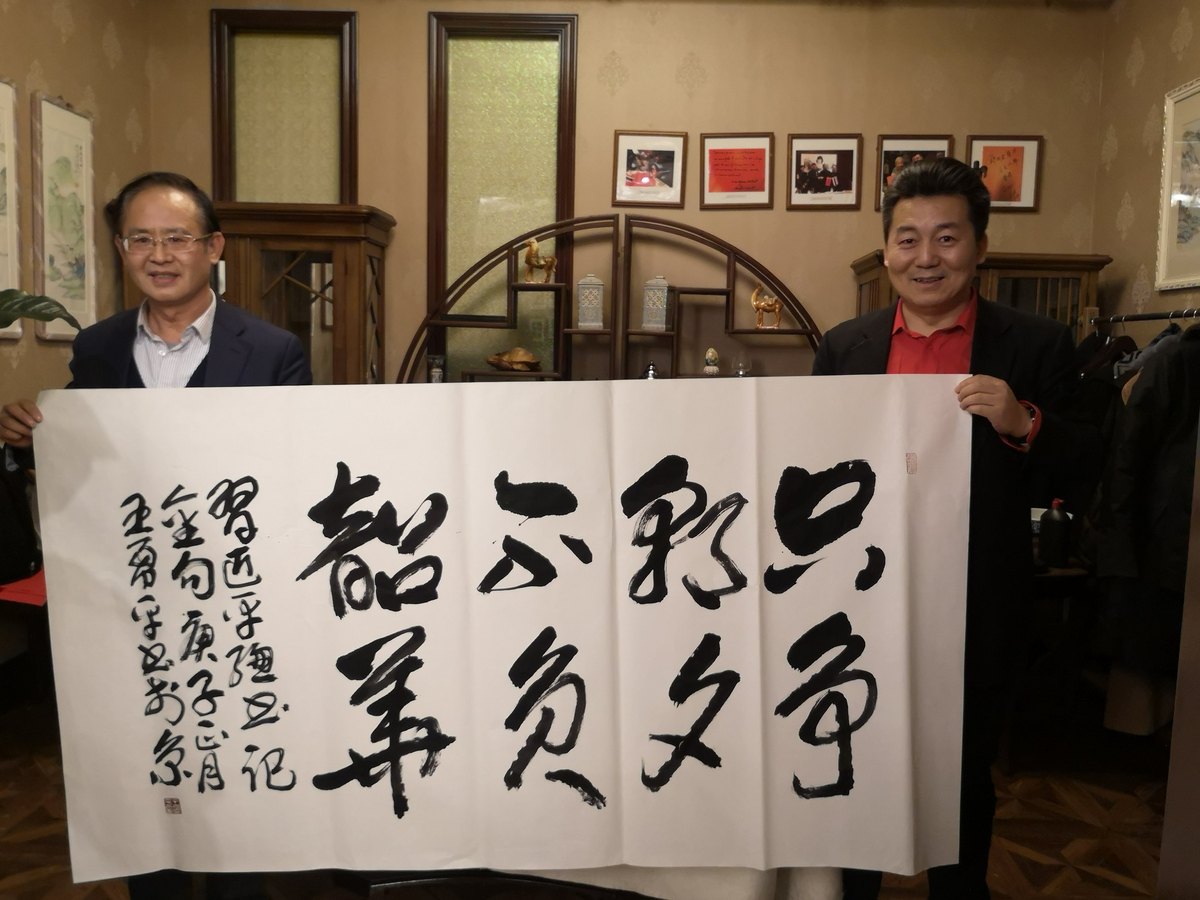 只争
朝夕
不负
韶华
习近平总书记
金句庚子正月
王勇平书于京